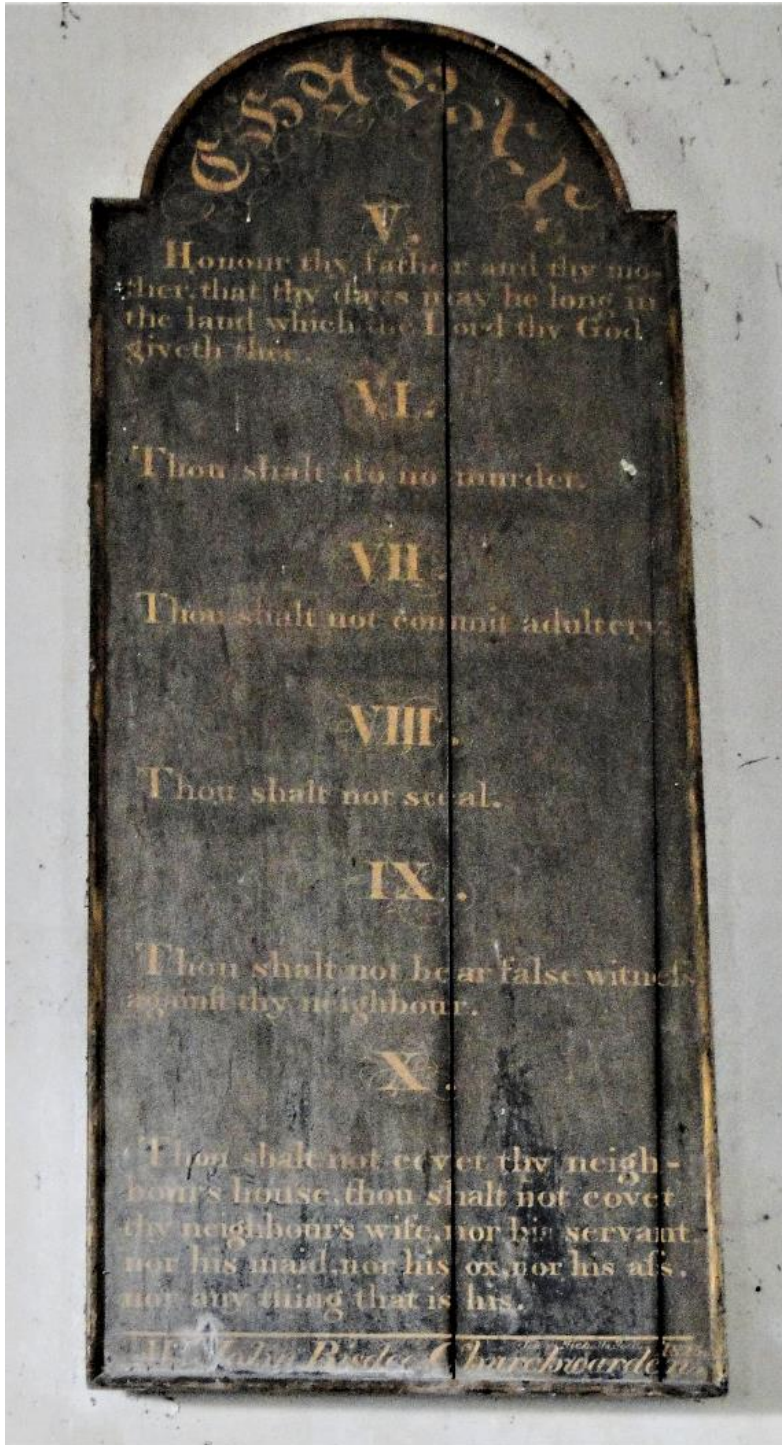 CHAP. XX.
V.
Honour thy father and thy mo-
ther, that thy days may be long in
the land which the Lord thy God
giveth thee.
VI.
Thou shalt do no murder.
VII.
Thou shalt not commit adultery.
VIII.
Thou shalt not steal.
IX.
Thou shalt not bear false witneſs
againſt thy neighbour.
X.
Thou shalt not covet thy neigh-
bour's house, thou shalt not covet
thy neighbour's wife, nor his servant,
nor his maid, nor his ox, nor his aſs,
nor any thing that is his.
John Churchwarden